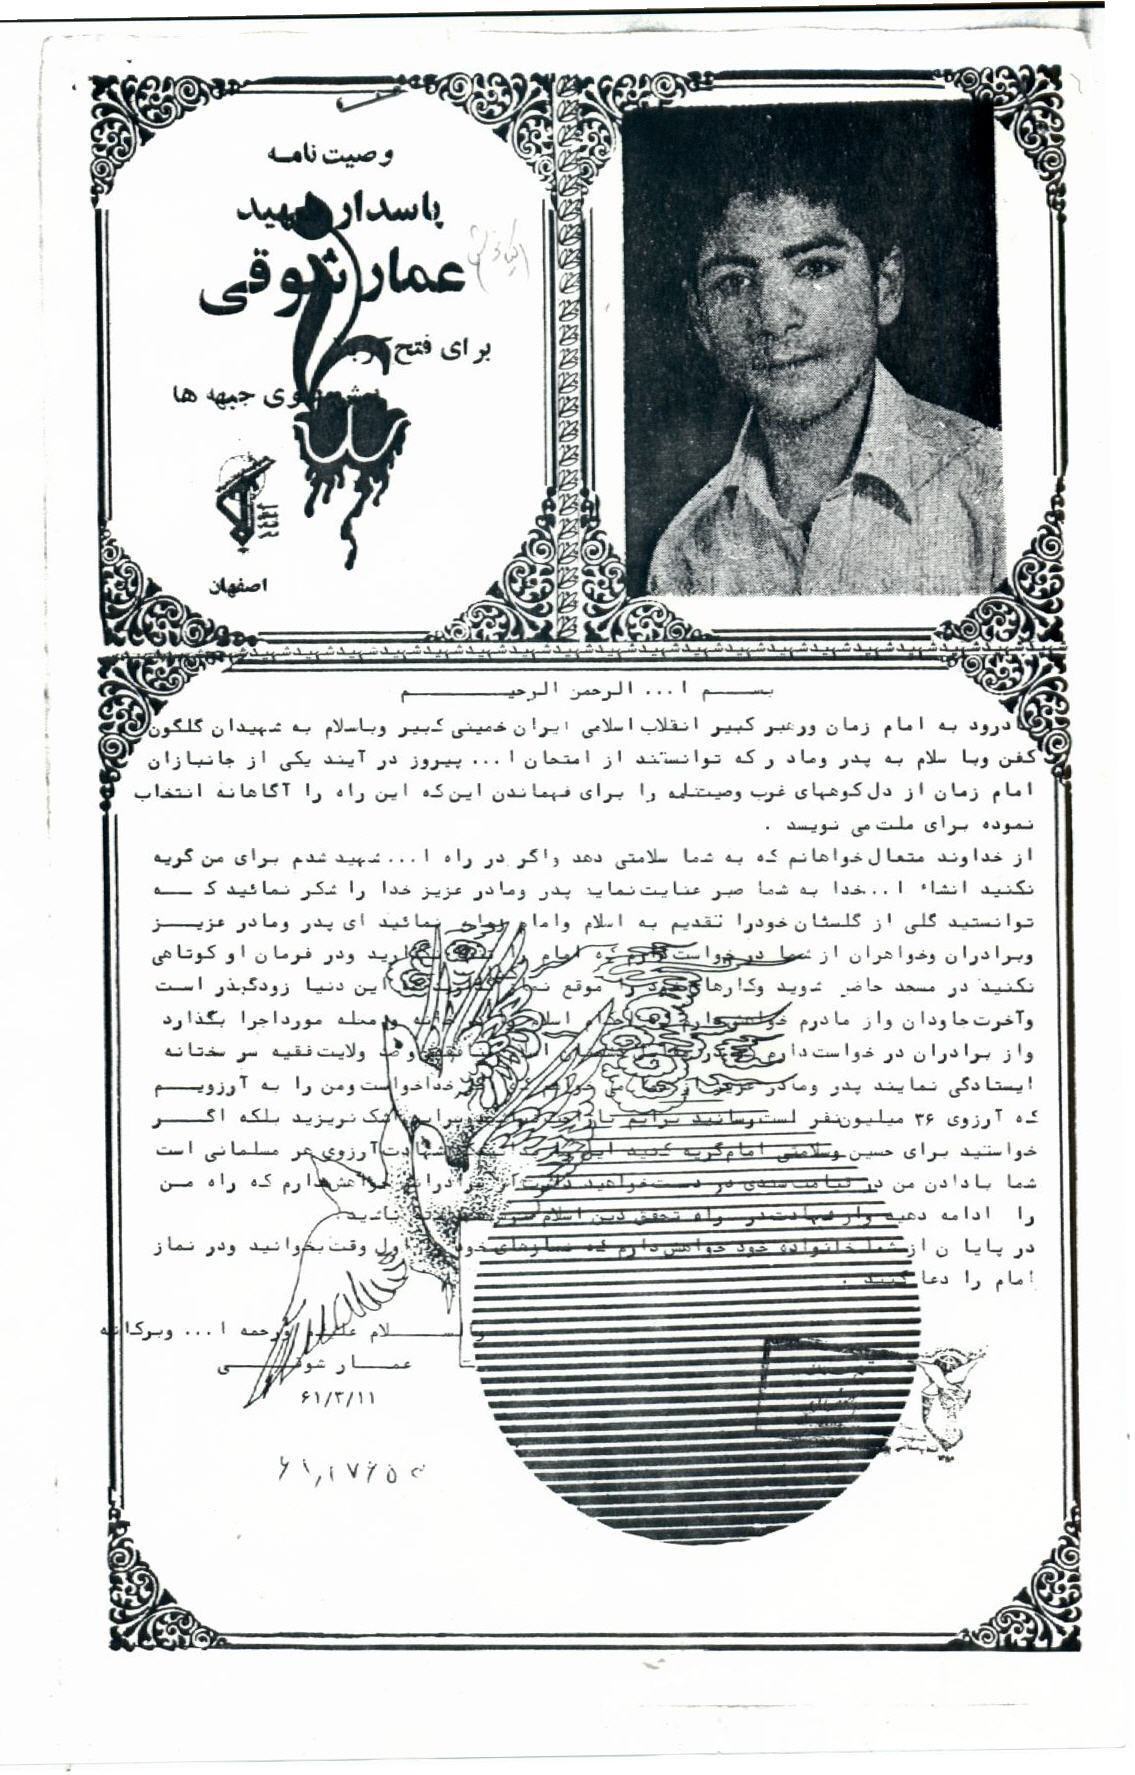 وصیت نامه
پاسدار شهید
عمار شوقی
برای فتح
جبهه ها
اصفهان
بسم ا... الرحمن الرحیم
درود به امام زمان ورهبر کبیر انقلاب اسلامی ایران خمینی کبیر وباسلام به شهیدان گلگون
کفن وبا سلام به پدر وماد ر که توانستند از امتحان ا... پیروز در آیند یکی از جانبازان
امام زمان از دل کوههای غرب وصیتنامه را برای فهماندن این که این راه را آگاهانه انتخاب
نموده برای ملت می نویسد .
از خداوند متعال خواهانم که به شما سلامتی دهد واگر در راه ا...شهید شدم برای من گریه
نکنید انشاء ا...خدا به شما صبر عنایت نماید پدر ومادر عزیز خدا را شکر نمائید کــه
توانستید گلی از گلستان خودرا تقدیم به اسلام وامام نمائید ای پدر ومادر عزیــز
وبرادران وخواهران از شما درخواست دارم که امام را ودر فرمان او کوتاهی
نکنید در مسجد حاضر شوید وکارهای خود را موقع این دنیا زودگذر است
وآخرت جاودان واز مادرم خواهش دارم اسلام محله مورداجرا بگذارد
واز برادران در خواست دارم ضد ولایت فقیه سر سختانه
ایستادگی نمایند پدر ومادر عزیز از شما می خواهم که خداخواست ومن را به آرزویــم
که آرزوی ۳۶ میلیون نفر است رسانید برایم اشک نریزید بلکه اگــر
خواستید برای حسین وسلامتی امام گریه کنید شهادت آرزوی هر مسلمانی است
شما بادادن من در قیامت سندی در دست خواهید داشت از برادرانم خواهش دارم که راه مـن
را ادامه دهید واز شهادت در راه تحقق دین اسلام باشید.
در پایا ن از شما خانواده خود خواهش دارم که نمازهای خود اول وقت بخوانید ودر نماز
امام را دعا کنید .
والســـلام ورحمه ا... وبرکاته
عمــار شوقــی
۶۱/۳/۱۱